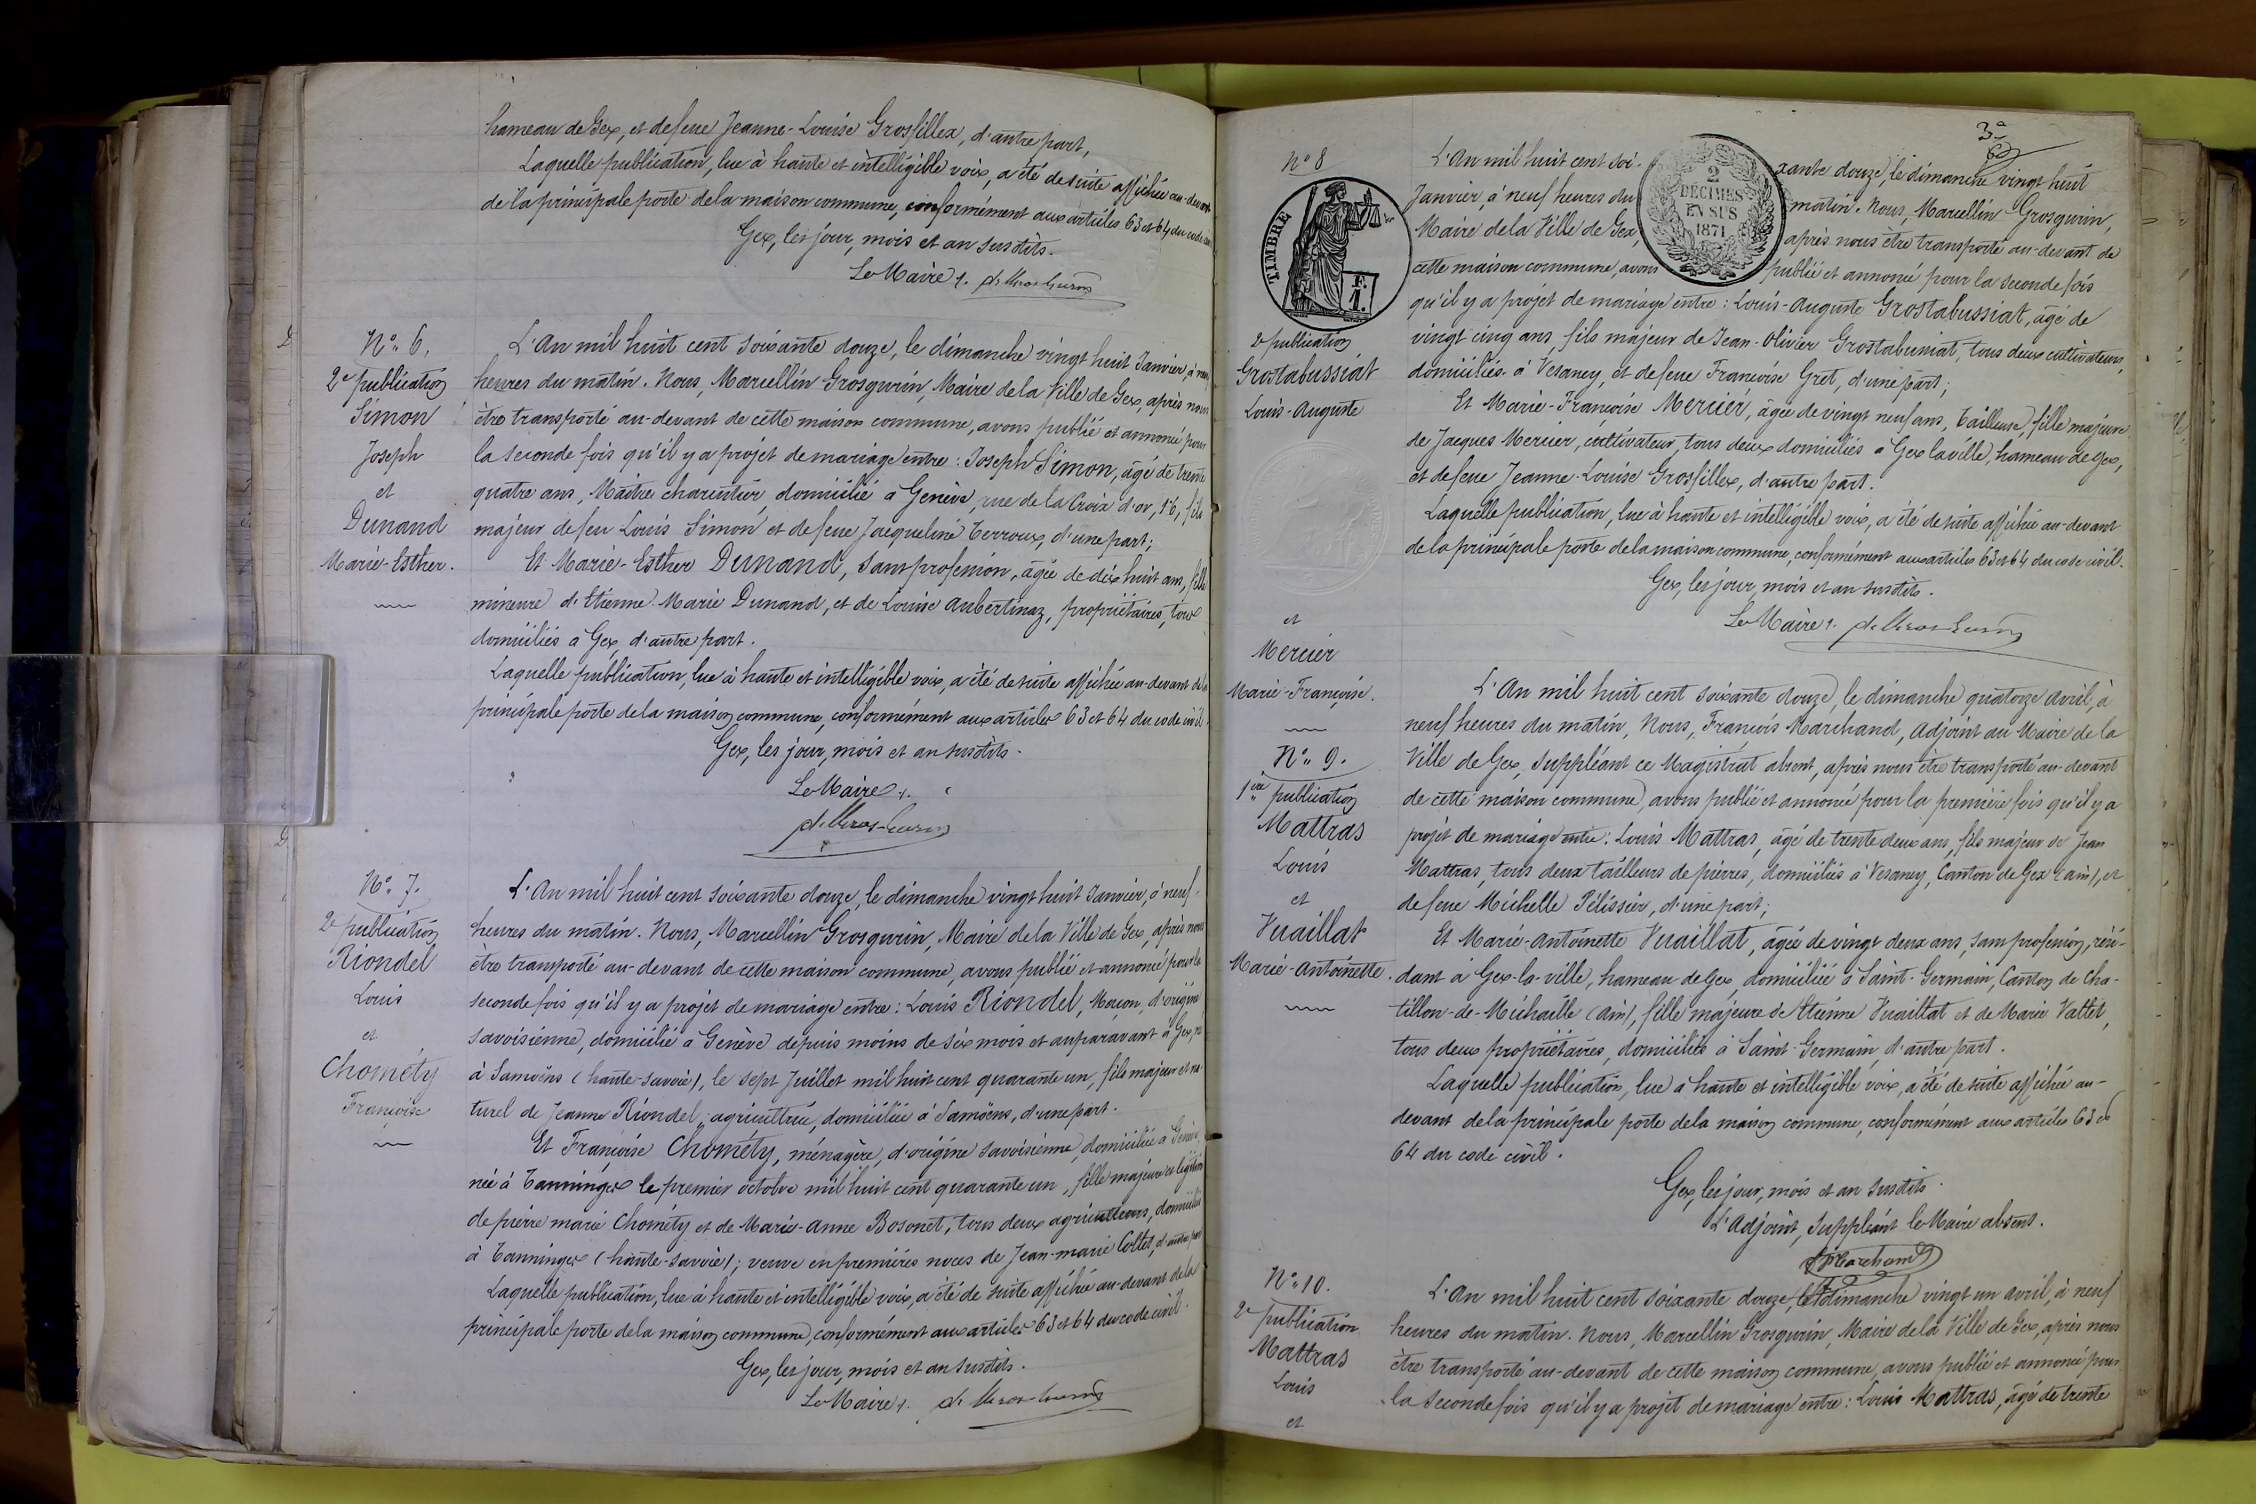 hameau de Gex, et de feue Jeanne-Louise Grosfillex, d'autre part,
Laquelle publication, lue à haute et intelligible voix, a été de suite affichée au-devant
de la principale porte de la maison commune, conformément aux articles 63 et 64 du code civil
Gex, les jour, mois et an susdits.
Le Maire
N° 6.
2e publication
Simon
Joseph
et
Dunand
Marie-Esther.
L'An mil huit cent soixante douze, le dimanche vingt huit Janvier, à neuf
heures du matin. Nous, Marcellin Grosgurin, Maire de la Ville de Gex, après nous
être transporté au-devant de cette maison commune, avons publié et annoncé pour
la seconde fois qu'il y a projet de mariage entre : Joseph Simon, âgé de trente
quatre ans, Maître charentier, domicilié à Genève, rue de la Croix d'or, 16, fils
majeur de feu Louis Simon et de feue Jacqueline Terroux, d'une part;
Et Marie-Esther Dunand, sans profession, âgée de dix huit ans, fille
mineure d'Etienne-Marie Dunand, et de Louise Aubertinaz, propriétaires, tous
domiciliés à Gex, d'autre part.
Laquelle publication, lue à haute et intelligible voix, a été de suite affichée au-devant de la
principale porte de la maison commune, conformément aux articles 63 et 64 du code civil.
Gex, les jour, mois et an susdits.
Le Maire
N° 7.
2e publication
Riondel
Louis
et
Chométy
Françoise
L'An mil huit cent soixante douze, le dimanche vingt huit Janvier, à neuf
heures du matin. Nous, Marcellin Grosgurin, Maire de la Ville de Gex, après nous
être transporté au-devant de cette maison commune, avons publié et annoncé pour la
seconde fois qu'il y a projet de mariage entre : Louis Riondel, Maçon, d'origine
savoisienne, domicilié à Genève depuis moins de six mois et auparavant à Gex, né
à Samoëns (haute-savoie), le sept Juillet mil huit cent quarante un, fils majeur et na-
turel de Jeanne Riondel, agricultrice, domiciliée à Samöens, d'une part.
Et Françoise Chométy, ménagère, d'origine savoisienne, domiciliée à Genève,
née à Tanninges le premier octobre mil huit cent quarante un, fille majeure et légitime
de pierre marie Chométy et de Marie-Anne Bosonet, tous deux agriculteurs, domiciliés
à Tanninges (haute-savoie); veuve en premières noces de Jean-marie Collet, d'autre part
Laquelle publication, lue à haute et intelligible voix, a été de suite affichée au-devant de la
principale porte de la maison commune, conformément aux articles 63 et 64 du code civil.
Gex, les jour, mois et an susdits.
Le Maire
3e
N° 8
TIMBRE
F.
1.
2
DÉCIMES
EN SUS
1871
2e publication
Grostabussiat
Louis-Auguste
et
Mercier
Marie-Françoise.
L'An mil huit cent soixante douze, le dimanche vingt huit
Janvier, à neuf heures du matin. Nous, Marcellin Grosgurin,
Maire de la Ville de Gex, après nous être transporté au-devant de
cette maison commune, avons publié et annoncé pour la seconde fois
qu'il y a projet de mariage entre : Louis-Auguste Grostabussiat, âgé de
vingt cinq ans fils majeur de Jean-Olivier Grostabussiat, tous deux cultivateurs,
domiciliés à Vesancy, et de feue Françoise Gret, d'une part;
Et Marie-Françoise Mercier, âgée de vingt neuf ans, Tailleuse, fille majeure
de Jacques Mercier, cultivateur, tous deux domiciliés à Gex la ville, hameau de Gex,
et de feue Jeanne-Louise Grosfillex, d'autre part.
Laquelle publication, lue à haute et intelligible voix, a été de suite affichée au-devant
de la principale porte de la maison commune, conformément aux articles 63 et 64 du code civil.
Gex, les jour, mois et an susdits.
Le Maire
N° 9.
1ère publication
Mattras
Louis
et
Vuaillat
Marie-Antoinette.
L'An mil huit cent soixante douze, le dimanche quatorze Avril, à
neuf heures du matin, Nous, François Marchand, Adjoint au Maire de la
Ville de Gex, Suppléant ce Magistrat absent, après nous être transporté au-devant
de cette maison commune, avons publié et annoncé pour la première fois qu'il y a
projet de mariage entre : Louis Mattras, âgé de trente deux ans, fils majeur de Jean
Mattras, tous deux tailleurs de pierres, domiciliés à Vesancy, Canton de Gex (ain), et
de feue Michelle Pélissier, d'une part;
Et Marie-Antoinette Vuaillat, âgée de vingt deux ans, sans profession, rési-
dant à Gex-la-ville, hameau de Gex, domiciliée à Saint-Germain, Canton de Cha-
tillon-de-Michaille (ain), fille majeure d'Etienne Vuaillat et de Marie Vallet,
tous deux propriétaires, domiciliés à Saint-Germain, d'autre part.
Laquelle publication, lue à haute et intelligible voix, a été de suite affichée au-
devant de la principale porte de la maison commune, conformément aux articles 63 et
64 du code civil.
Gex, les jour, mois et an susdits.
L'Adjoint, Suppléant le Maire absent.
Marchand
N° 10.
2e publication
Mattras
Louis
et
L'An mil huit cent soixante douze, le dimanche vingt un avril, à neuf
heures du matin. Nous, Marcellin Grosgurin, Maire de la Ville de Gex, après nous
être transporté au-devant de cette maison commune, avons publié et annoncé pour
la seconde fois qu'il y a projet de mariage entre : Louis Mattras, âgé de trente